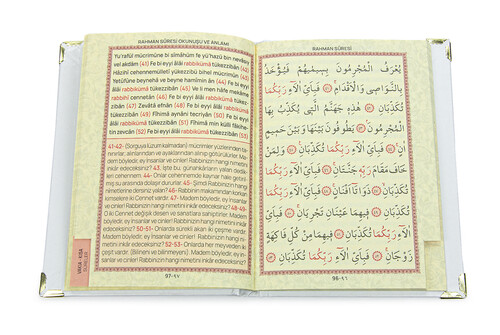 RAHMAN SÛRESİ OKUNUŞU VE ANLAMI
Yu'raful mücrimûne bi sîmâhüm fe yü'hazü bin nevâsıy
vel akdâm (41) Fe bi eyyi âlâi rabbikümâ tükezzibân (42)
Hâzihî cehennemülletî yükezzibü bihel mücrimûn (43)
Yetûfûne beynehâ ve beyne hamîmin ân (44) Fe bi eyyi
âlâi rabbikümâ tükezzibân (45) Ve li men hâfe mekâme
rabbihî cennetân (46) Fe bi eyyi âlâi rabbikümâ tükez
zibân (47) Zevâtâ efnân (48) Fe bi eyyi âlâi rabbikümâ
tükezzibân (49) Fîhimâ aynâni tecriyân (50) Fe bi eyyi
âlâi rabbikümâ tükezzibân (51) Fîhimâ min külli fâkihe
tin zevcân (52) Fe bi eyyi âlâi rabbikümâ tükezzibân (53)
41-42- (Sorguya lüzum kalmadan) mücrimler yüzlerinden ta
nınırlar, alınlarından ve ayaklarından alınıp götürülürler. Ma
dem böyledir; ey İnsanlar ve cinler! Rabbinizin hangi nimeti
ni inkâr edeceksiniz? 43. İşte bu, günahkârların yalan dedik
leri cehennem. 44- Onlar cehennemde kaynar hale getiril
miş su arasında dolaşıp dururlar. 45- Şimdi Rabbinizin hangi
nimetlerine dersiniz yalan? 46- Rabbinin makamından korkan
kimselere iki Cennet vardır. 47- Madem böyledir; ey insanlar
ve cinler! Rabbinizin hangi nimetini inkâr edeceksiniz? 48-49-
O iki Cennet değişik desen ve sanatlara sahiptirler. Madem
böyledir; ey insanlar ve cinler! Rabbinizin hangi nimetini inkâr
edeceksiniz? 50-51- Onlarda sürekli akan iki çeşme vardır.
Madem böyledir; ey insanlar ve cinler! Rabbinizin hangi ni
metini inkâr edeceksiniz? 52-53- Onlarda her meyveden iki
çeşit vardır. (Bilinen ve bilinmeyen). Madem böyledir; ey in
sanlar ve cinler! Rabbinizin hangi nimetini inkâr edeceksiniz?
97-٩٧
RAHMAN SÛRESİ
يُعْرَفُ الْمُجْرِمُونَ بِسِيمٰيهُمْ فَيُؤْخَذُ
بِالنَّوَاصِى وَالْاَقْدَامِ ﴿٤١﴾ فَبِاَىِّ اٰلَٓاءِ رَبِّكُمَا
تُكَذِّبَانِ ﴿٤٢﴾ هٰذِهِ جَهَنَّمُ الَّتِى يُكَذِّبُ بِهَا
الْمُجْرِمُونَ ﴿٤٣﴾ يَطُوفُونَ بَيْنَهَا وَبَيْنَ حَمِيمٍ
اٰنٍ ﴿٤٤﴾ فَبِاَىِّ اٰلَٓاءِ رَبِّكُمَا تُكَذِّبَانِ ﴿٤٥﴾ وَلِمَنْ
خَافَ مَقَامَ رَبِّهِ جَنَّتَانِ ﴿٤٦﴾ فَبِاَىِّ اٰلَٓاءِ رَبِّكُمَا
تُكَذِّبَانِ ﴿٤٧﴾ ذَوَاتَٓا اَفْنَانٍ ﴿٤٨﴾ فَبِاَىِّ اٰلَٓاءِ رَبِّكُمَا
تُكَذِّبَانِ ﴿٤٩﴾ فِيهِمَا عَيْنَانِ تَجْرِيَانِ ﴿٥٠﴾ فَبِاَىِّ
اٰلَٓاءِ رَبِّكُمَا تُكَذِّبَانِ ﴿٥١﴾ فِيهِمَا مِنْ كُلِّ فَاكِهَةٍ
زَوْجَانِ ﴿٥٢﴾ فَبِاَىِّ اٰلَٓاءِ رَبِّكُمَا تُكَذِّبَانِ
96-٩٦